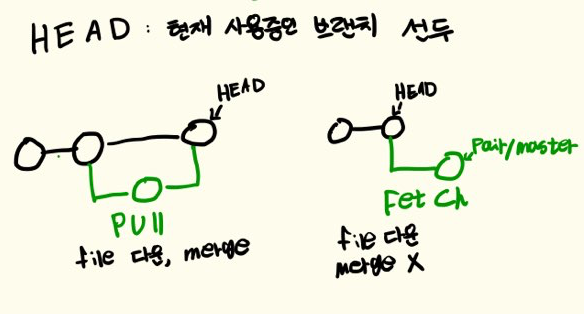 HEAD : 현재 사용중인 브랜치 선두
HEAD
PUll
file 다운, merge
HEAD
Pair/master
Fetch
file 다운
merge X